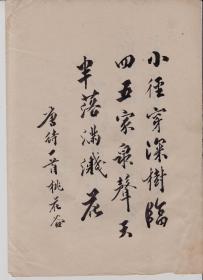 小徑穿深樹臨
四五家泉聲天
半落滿澗花
唐詩一首桃花谷